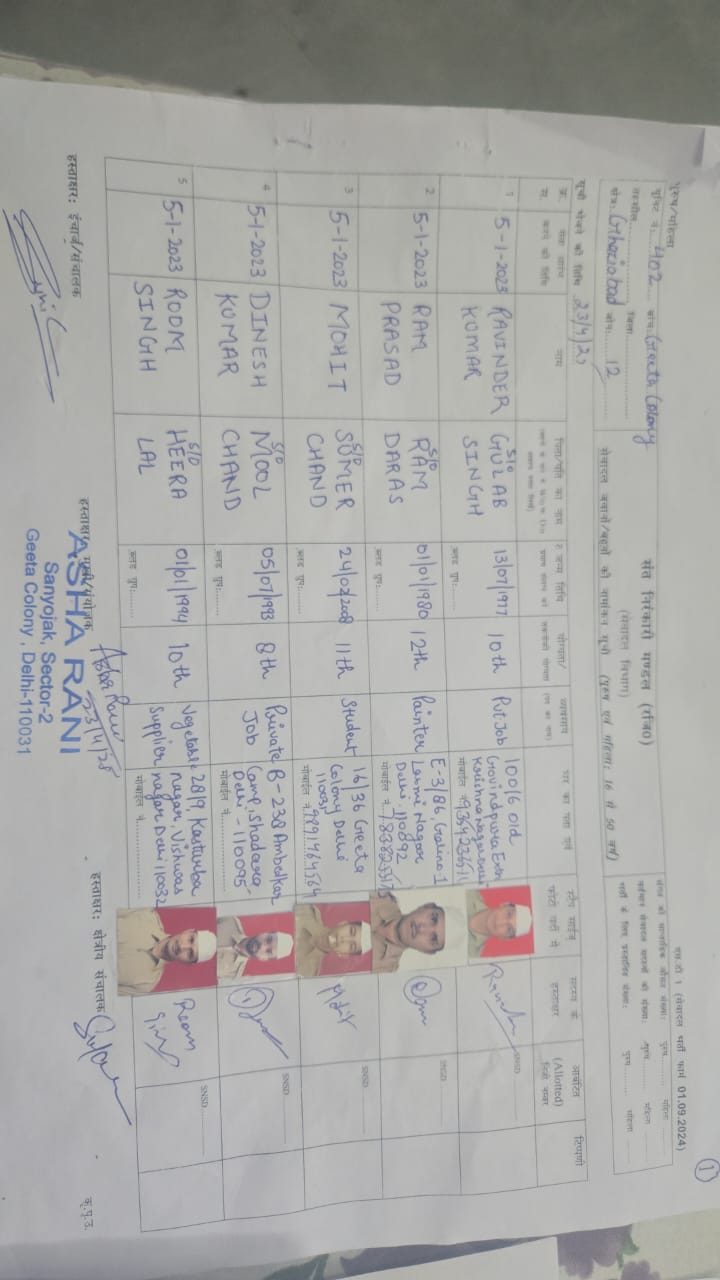 1
एस.डी 1 (सेवादल भर्ती फार्म 01.09.2024)
संत निरंकारी मण्डल (रजि0)
(सेवादल विभाग)
सेवादल जवानों/बहनों की नामांकन सूची (पुरूष एवं महिला: 16 से 50 वर्ष)
पुरूष/महिला
यूनिट नं: 402 ब्रांच: Geeta Colony
तहसील जिला
क्षेत्र: Ghaziabad जोन: 12
सूची भेजने की तिथि 23/4/2
संगत की साप्ताहिक औसत संख्या: पुरूष महिला
वर्तमान सेवादल सदस्यों की संख्या: पुरूष महिला
भर्ती के लिए प्रस्तावित संख्या: पुरूष महिला
क्र. सं. सेवा आरंभ करने की तिथि नाम पिता/पति का नाम जन्म तिथि योग्यता/ तकनीकी योग्यता व्यवसाय घर का पता एवं स्टैंप साईज फोटो वर्दी में सदस्य के हस्ताक्षर आबंटित (Allotted) निजी नम्बर टिप्पणी
1 5-1-2023 RAVINDER KUMAR S/O GULAB SINGH 13/07/1977 10th Pvt Job 100/6 Old Govindpura Extn Krishna Nagar
ब्लड ग्रुप: मोबाईल नं. SNSD
2 5-1-2023 RAM PRASAD S/O RAM DARAS 01/01/1980 12th Painter E-3/86, Gali no-1 Laxmi Nagar Delhi 110092
ब्लड ग्रुप: मोबाईल नं. SNSD
3 5-1-2023 MOHIT S/O SUMER CHAND 24/02/2008 11th Student 16/36 Geeta Colony Delhi 110031
ब्लड ग्रुप: मोबाईल नं. 9891464564 मोहित SNSD
4 5-1-2023 DINESH KUMAR S/O MOOL CHAND 05/07/1993 8th Private Job B-238 Ambedkar Camp, Shadara Delhi-110095
ब्लड ग्रुप: मोबाईल नं. SNSD
5 5-1-2023 ROOM SINGH S/O HEERA LAL 01/01/1994 10th Vegetable Supplier 28/9, Kasturba nagar, Vishwas nagar Delhi 110032
ब्लड ग्रुप: मोबाईल नं. Room Sing SNSD
हस्ताक्षर: इंचार्ज/संचालक
हस्ताक्षर: मुखी/संयोजक
Asha Rani
23/4/25
ASHA RANI
Sanyojak, Sector-2
Geeta Colony, Delhi-110031
हस्ताक्षर: क्षेत्रीय संचालक
कृ.पृ.उ.